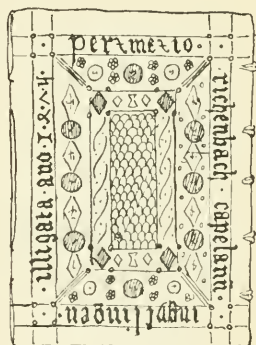 per me io
richenbach capelanu.
ingyslingen
illigata ano